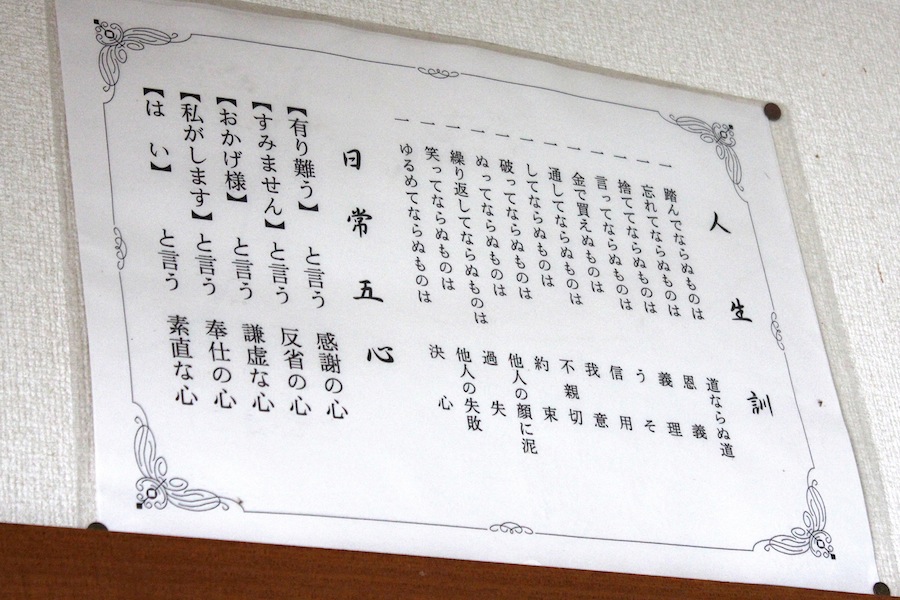 人生訓
一 踏んでならぬものは 道ならぬ道
一 忘れてならぬものは 恩義
一 捨ててならぬものは 義理
一 言ってならぬものは うそ
一 金で買えぬものは 信用
一 通してならぬものは 我意
一 してならぬものは 不親切
一 破ってならぬものは 約束
一 ぬってならぬものは 他人の顔に泥
一 繰り返してならぬものは 過失
一 笑ってならぬものは 他人の失敗
一 ゆるめてならぬものは 決心
日常五心
【有り難う】 と言う 感謝の心
【すみません】 と言う 反省の心
【おかげ様】 と言う 謙虚な心
【私がします】 と言う 奉仕の心
【は い】 と言う 素直な心